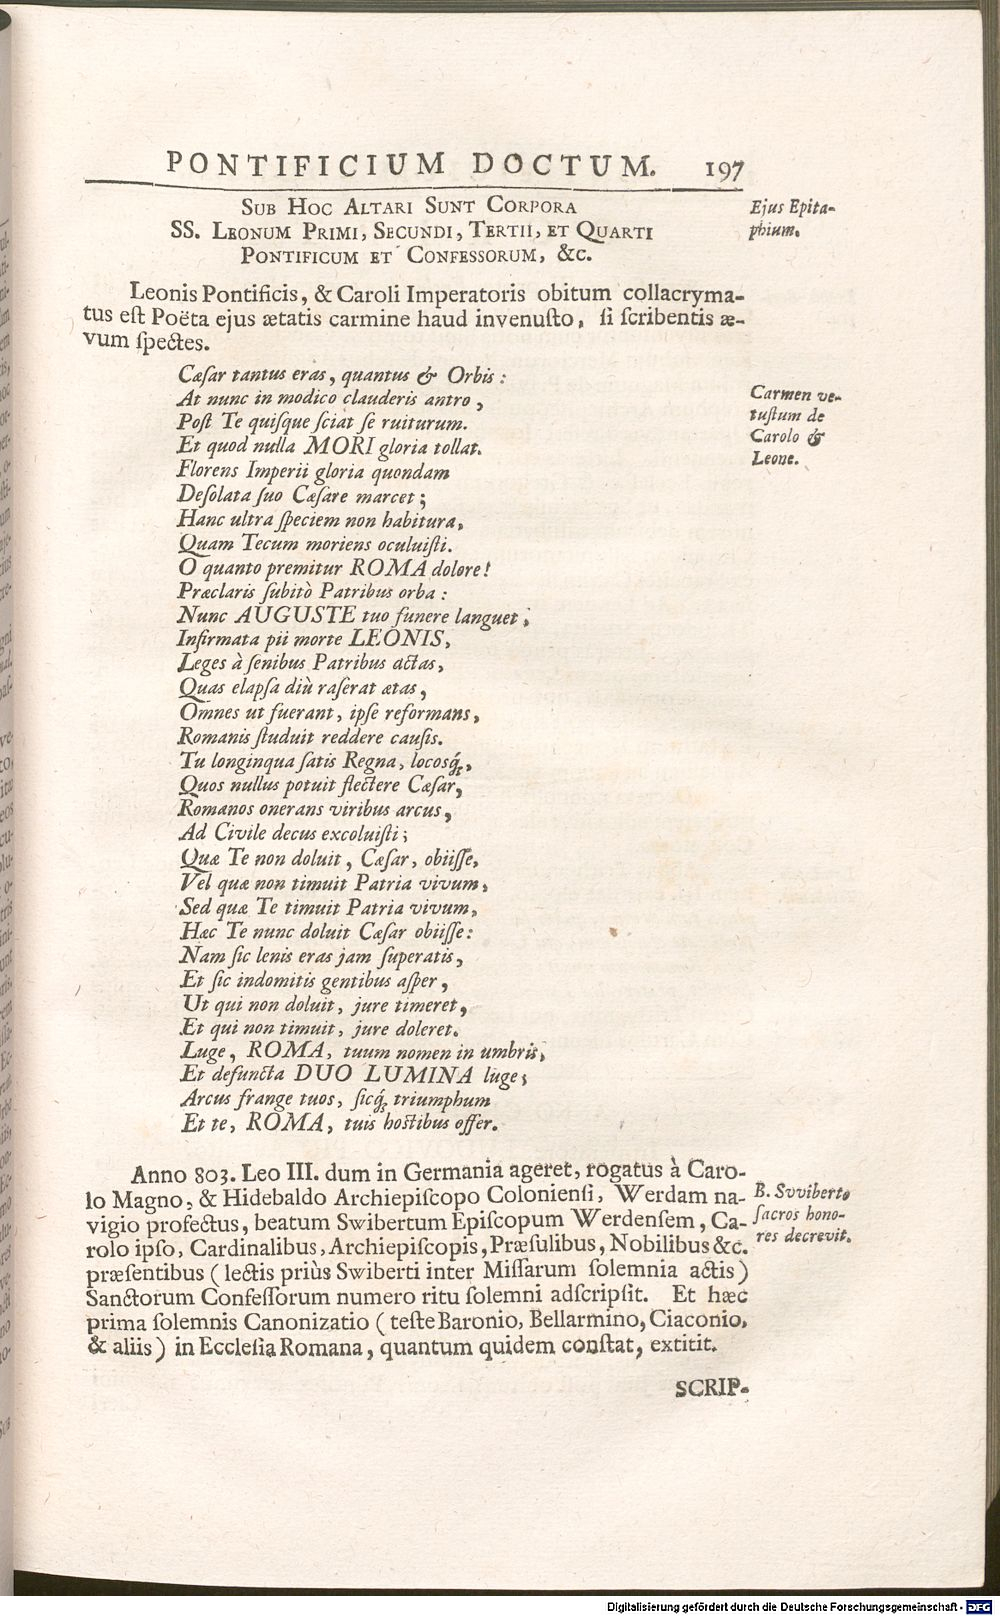 PONTIFICIUM DOCTUM. 197
SUB HOC ALTARI SUNT CORPORA
SS. LEONUM PRIMI, SECUNDI, TERTII, ET QUARTI
PONTIFICUM ET CONFESSORUM, &C.
Ejus Epita-
phium.
Leonis Pontificis, & Caroli Imperatoris obitum collacryma-
tus eſt Poëta ejus ætatis carmine haud invenuſto, ſi ſcribentis æ-
vum ſpectes.
Cæſar tantus eras, quantus & Orbis:
At nunc in modico clauderis antro,
Poſt Te quiſque ſciat ſe ruiturum.
Et quod nulla MORI gloria tollat.
Carmen ve-
tuſtum de
Carolo &
Leone.
Florens Imperii gloria quondam
Deſolata ſuo Cæſare marcet;
Hanc ultra ſpeciem non habitura,
Quam Tecum moriens oculuiſti.
O quanto premitur ROMA dolore!
Præclaris ſubitò Patribus orba:
Nunc AUGUSTE tuo funere languet;
Infirmata pii morte LEONIS,
Leges à ſenibus Patribus actas,
Quas elapſa diù raſerat ætas,
Omnes ut fuerant, ipſe reformans,
Romanis ſtuduit reddere cauſis.
Tu longinqua ſatis Regna, locosq́;,
Quos nullus potuit flectere Cæſar,
Romanos onerans viribus arcus,
Ad Civile decus excoluiſti;
Quæ Te non doluit, Cæſar, obiiſſe,
Vel quæ non timuit Patria vivum,
Sed quæ Te timuit Patria vivum,
Hæc Te nunc doluit Cæſar obiiſſe:
Nam ſic lenis eras jam ſuperatis,
Et ſic indomitis gentibus aſper,
Ut qui non doluit, jure timeret,
Et qui non timuit, jure doleret.
Luge, ROMA, tuum nomen in umbris,
Et defuncta DUO LUMINA luge;
Arcus frange tuos, ſicq́; triumphum
Et te, ROMA, tuis hoſtibus offer.
Anno 803. Leo III. dum in Germania ageret, rogatus à Caro-
lo Magno, & Hidebaldo Archiepiſcopo Colonienſi, Werdam na-
vigio profectus, beatum Swibertum Epiſcopum Werdenſem, Ca-
rolo ipſo, Cardinalibus, Archiepiſcopis, Præſulibus, Nobilibus &c.
præſentibus (lectis priùs Swiberti inter Miſſarum ſolemnia actis)
Sanctorum Confeſſorum numero ritu ſolemni adſcripſit. Et hæc
prima ſolemnis Canonizatio (teſte Baronio, Bellarmino, Ciaconio,
& aliis) in Eccleſia Romana, quantum quidem conſtat, extitit.
B. Svviberto
ſacros hono-
res decrevit.
SCRIP-
Digitalisierung gefördert durch die Deutsche Forschungsgemeinschaft - DFG